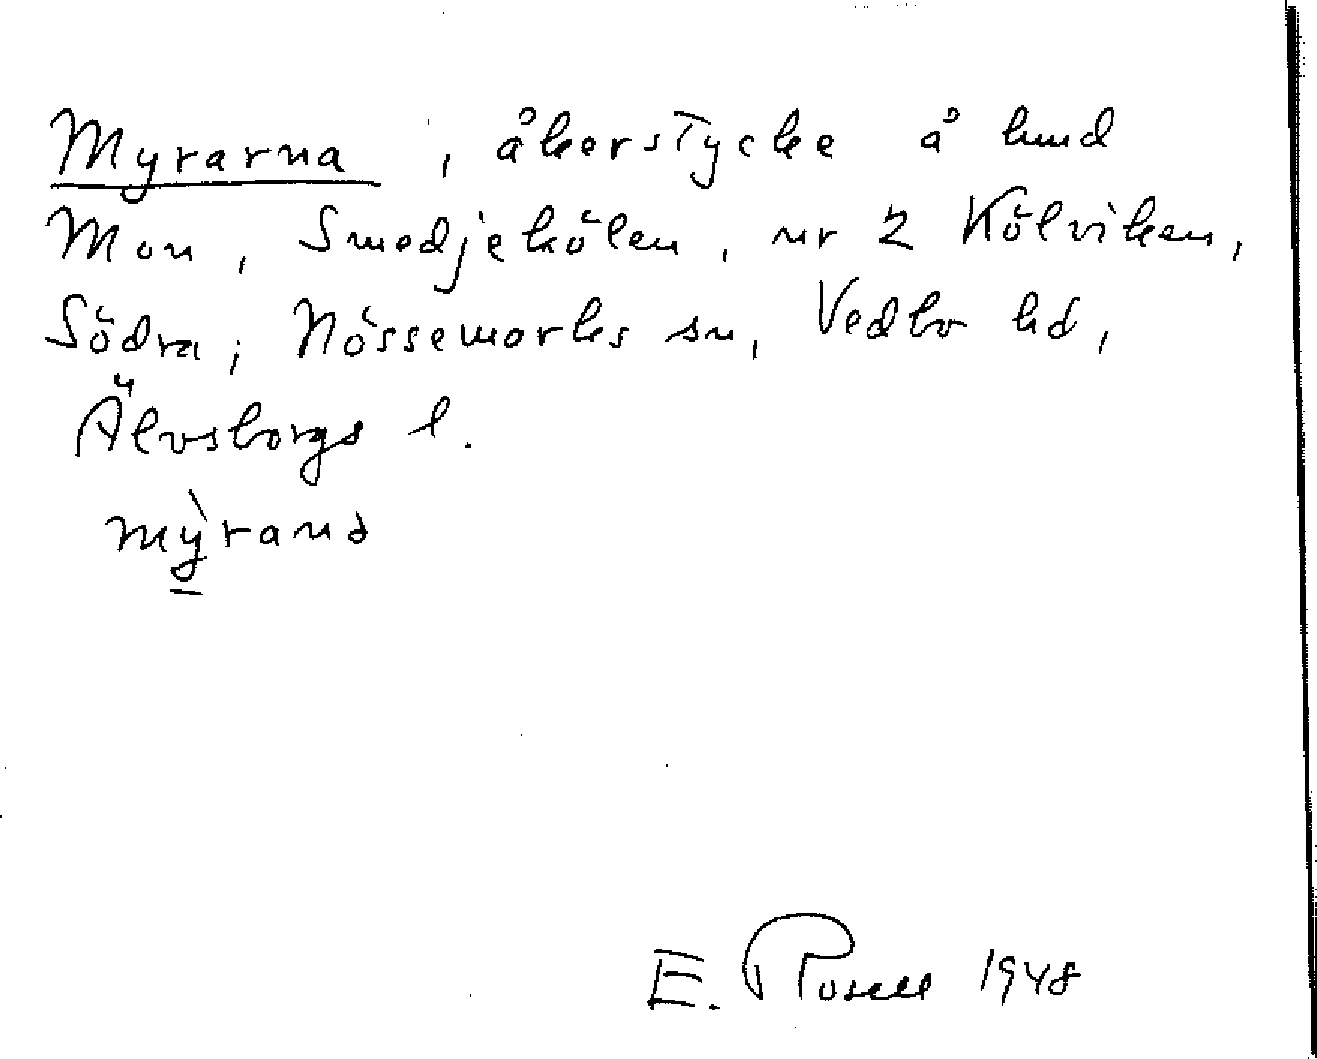 Myrarna, åkerstycke å hmd
Mon, Smedjekölen, nr 2 Kölviken,
Södra; Nössemarks sn, Vedbo hd,
Älvsborgs l.
mỳrana
E. Rosell 1948